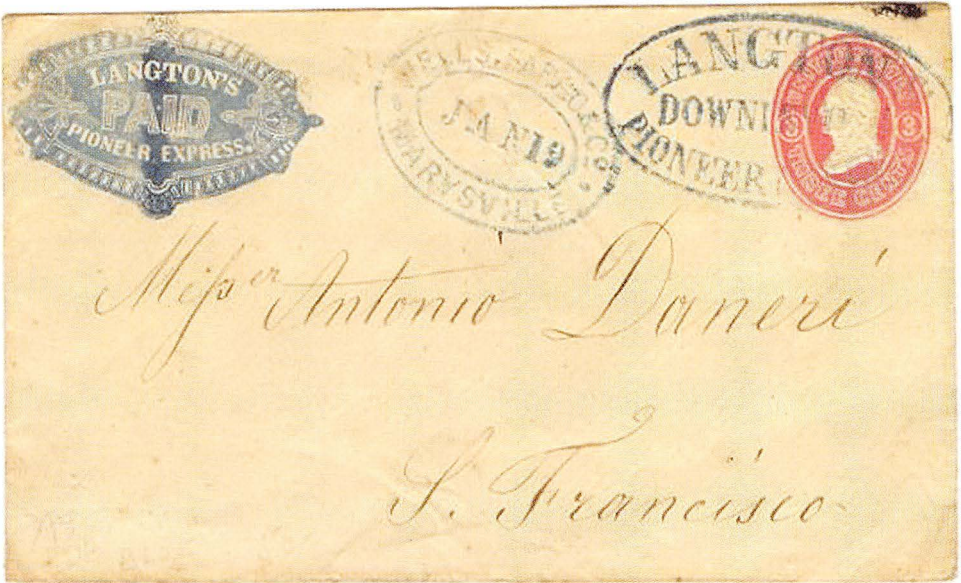 LANGTON'S
PAID
PIONEER EXPRESS.
WELLS, FARGO & CO.
JAN 19
MARYSVILLE
LANGTON
DOWNI
PIONEER
3 3
THREE CENTS
Messer Antonio Daneri
S. Francisco